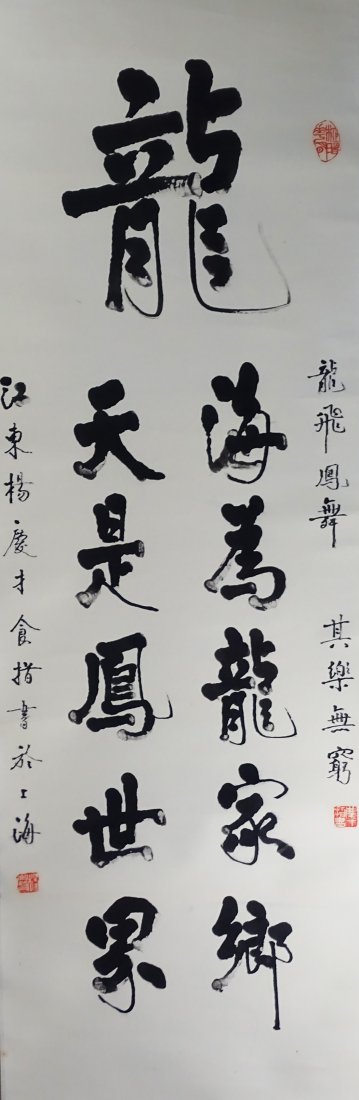 龍
龍飛鳳舞 其樂無窮
海為龍家鄉
天是鳳世界
江東楊慶才食指書於上海